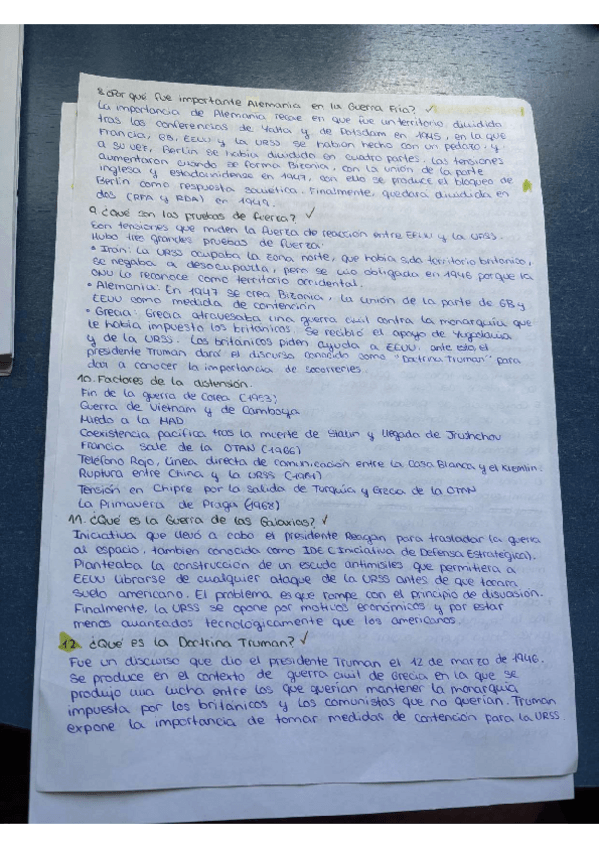 8.¿Por qué fue importante Alemania en la Guerra Fría? ✓
La importancia de Alemania recae en que fue un territorio dividido
tras las conferencias de Yalta y de Potsdam en 1945, en la que
Francia, GB, EEUU y la URSS se habían hecho con un pedazo. Y
a su vez, Berlín se había dividido en cuatro partes. Las tensiones
aumentaron cuando se forma Bizonia, con la unión de la parte
inglesa y estadounidense en 1947, con ello se produce el bloqueo de
Berlín como respuesta soviética. Finalmente, quedará dividida en
dos (RFA y RDA) en 1949.
9.¿Qué son las pruebas de fuerza? ✓
Son tensiones que miden la fuerza de reacción entre EEUU y la URSS.
Hubo tres grandes pruebas de fuerza:
• Irán: La URSS ocupaba la zona norte, que había sido territorio británico,
se negaba a desocuparla, pero se vio obligada en 1946 porque la
ONU la reconoce como territorio occidental.
• Alemania: En 1947 se crea Bizonia, la unión de la parte de GB y
EEUU como medida de contención
• Grecia: Grecia atravesaba una guerra civil contra la monarquía que
le había impuesto los británicos. Se recibió el apoyo de Yugoslavia
y de la URSS. Los británicos piden ayuda a EEUU, ante esto, el
presidente Truman dará el discurso conocido como "Doctrina Truman" para
dar a conocer la importancia de socorrerles.
10. Factores de la distensión.
Fin de la guerra de Corea (1953)
Guerra de Vietnam y de Camboya
Miedo a la MAD
Coexistencia pacífica tras la muerte de Stalin y llegada de Jrushchov
Francia sale de la OTAN (1966)
Teléfono Rojo, línea directa de comunicación entre la Casa Blanca y el Kremlin.
Ruptura entre China y la URSS (1961)
Tensión en Chipre por la salida de Turquía y Grecia de la OTAN
La Primavera de Praga (1968)
11. ¿Qué es la Guerra de las Galaxias? ✓
Iniciativa que llevó a cabo el presidente Reagan para trasladar la guerra
al espacio, también conocida como IDE (Iniciativa de Defensa Estratégica).
Planteaba la construcción de un escudo antimisiles que permitiera a
EEUU librarse de cualquier ataque de la URSS antes de que tocara
suelo americano. El problema es que rompe con el principio de disuasión.
Finalmente, la URSS se opone por motivos económicos y por estar
menos avanzados tecnológicamente que los americanos.
12. ¿Qué es la Doctrina Truman? ✓
Fue un discurso que dio el presidente Truman el 12 de marzo de 1946.
Se produce en el contexto de guerra civil de Grecia en la que se
produjo una lucha entre los que querían mantener la monarquía
impuesta por los británicos y los comunistas que no querían. Truman
expone la importancia de tomar medidas de contención para la URSS.